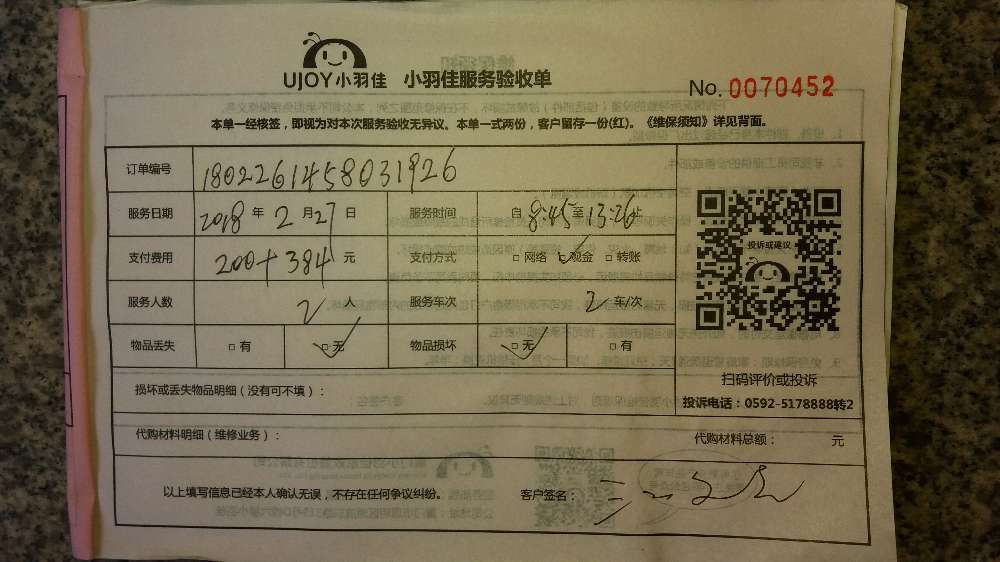 UJOY小羽佳 小羽佳服务验收单
No. 0070452
本单一经核签，即视为对本次服务验收无异议。本单一式两份，客户留存一份(红)。《维保须知》详见背面。
订单编号 1802261458031926
服务日期 2018 年 2 月 27 日 服务时间 自 8:45 至 13:26 止
支付费用 200+384 元 支付方式 □ 网络 □ 现金 □ 转账
服务人数 2 人 服务车次 2 车/次
物品丢失 □ 有 □ 无 物品损坏 □ 无 □ 有
投诉或建议
扫码评价或投诉
投诉电话：0592-5178888转2
损坏或丢失物品明细（没有可不填）：
代购材料明细（维修业务）： 代购材料总额： 元
以上填写信息已经本人确认无误，不存在任何争议纠纷。 客户签名：